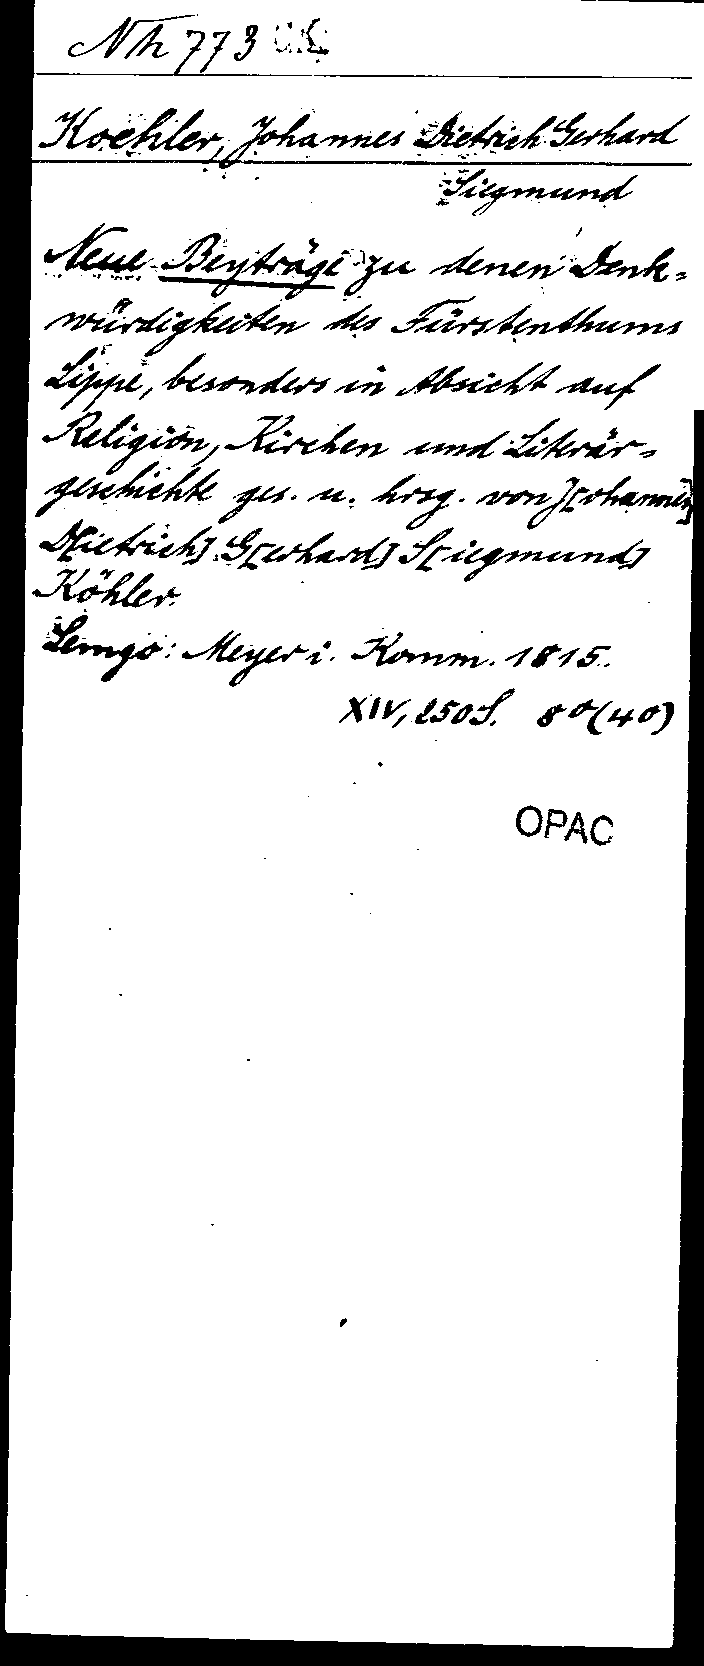 Nh 773
Koehler, Johannes Dietrich Gerhard
Siegmund
Neue Beyträge zu denen Denk=
würdigkeiten des Fürstenthums
Lippe, besonders in Absicht auf
Religion, Kirchen und Literär=
geschichte ges. u. hrsg. von J[ohannes]
D[ietrich] G[erhard] S[iegmund]
Köhler.
Lemgo: Meyer i. Komm. 1815.
XIV, 250 S. 8° (4°)
OPAC